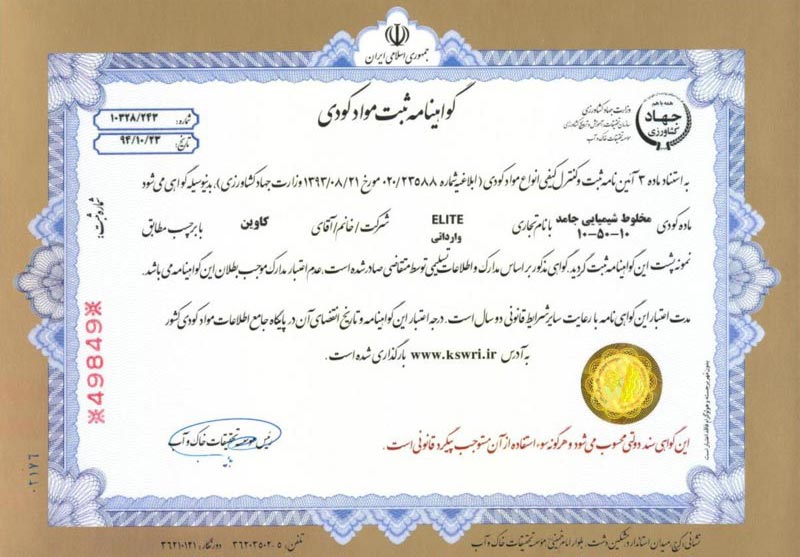 جمهوری اسلامی ایران
گواهینامه ثبت مواد کودی
شماره: ۱۰۳۲۸/۲۴۳
تاریخ: ۹۴/۱۰/۲۳
همه با هم
جهاد
کشاورزی
وزارت جهاد کشاورزی
سازمان تحقیقات، آموزش و ترویج کشاورزی
موسسه تحقیقات خاک و آب
به استناد ماده ۳ آئین نامه ثبت و کنترل کیفی انواع مواد کودی (ابلاغیه شماره ۰۲۰/۲۳۵۸۸ مورخ ۱۳۹۳/۰۸/۲۱ وزارت جهاد کشاورزی)، بدینوسیله گواهی می شود
ماده کودی مخلوط شیمیایی جامد ۱۰-۵۰-۱۰ با نام تجاری ELITE وارداتی شرکت/خانم/آقای کاوین با برچسب مطابق
نمونه پشت این گواهینامه ثبت گردید. گواهی مذکور بر اساس مدارک و اطلاعات تسلیمی توسط متقاضی صادر شده است. عدم اعتبار مدارک موجب بطلان این گواهینامه می باشد.
مدت اعتبار این گواهی نامه با رعایت سایر شرایط قانونی دو سال است. درجه اعتبار این گواهینامه و تاریخ انقضای آن در پایگاه جامع اطلاعات مواد کودی کشور
به آدرس www.kswri.ir بارگذاری شده است.
این گواهی سند دولتی محسوب می شود و هرگونه سوء استفاده از آن مستوجب پیگرد قانونی است.
رئیس موسسه تحقیقات خاک و آب
شماره ثبت:
※49849※
۰۲۱۷۶
بدون مهر برجسته و هولوگرام فاقد اعتبار است
نشانی: کرج، میدان استاندارد، مشکین دشت، بلوار امام خمینی، موسسه تحقیقات خاک و آب تلفن: ۵-۳۶۲۰۳۵۰۲ دورنگار: ۳۶۲۱۰۱۲۱